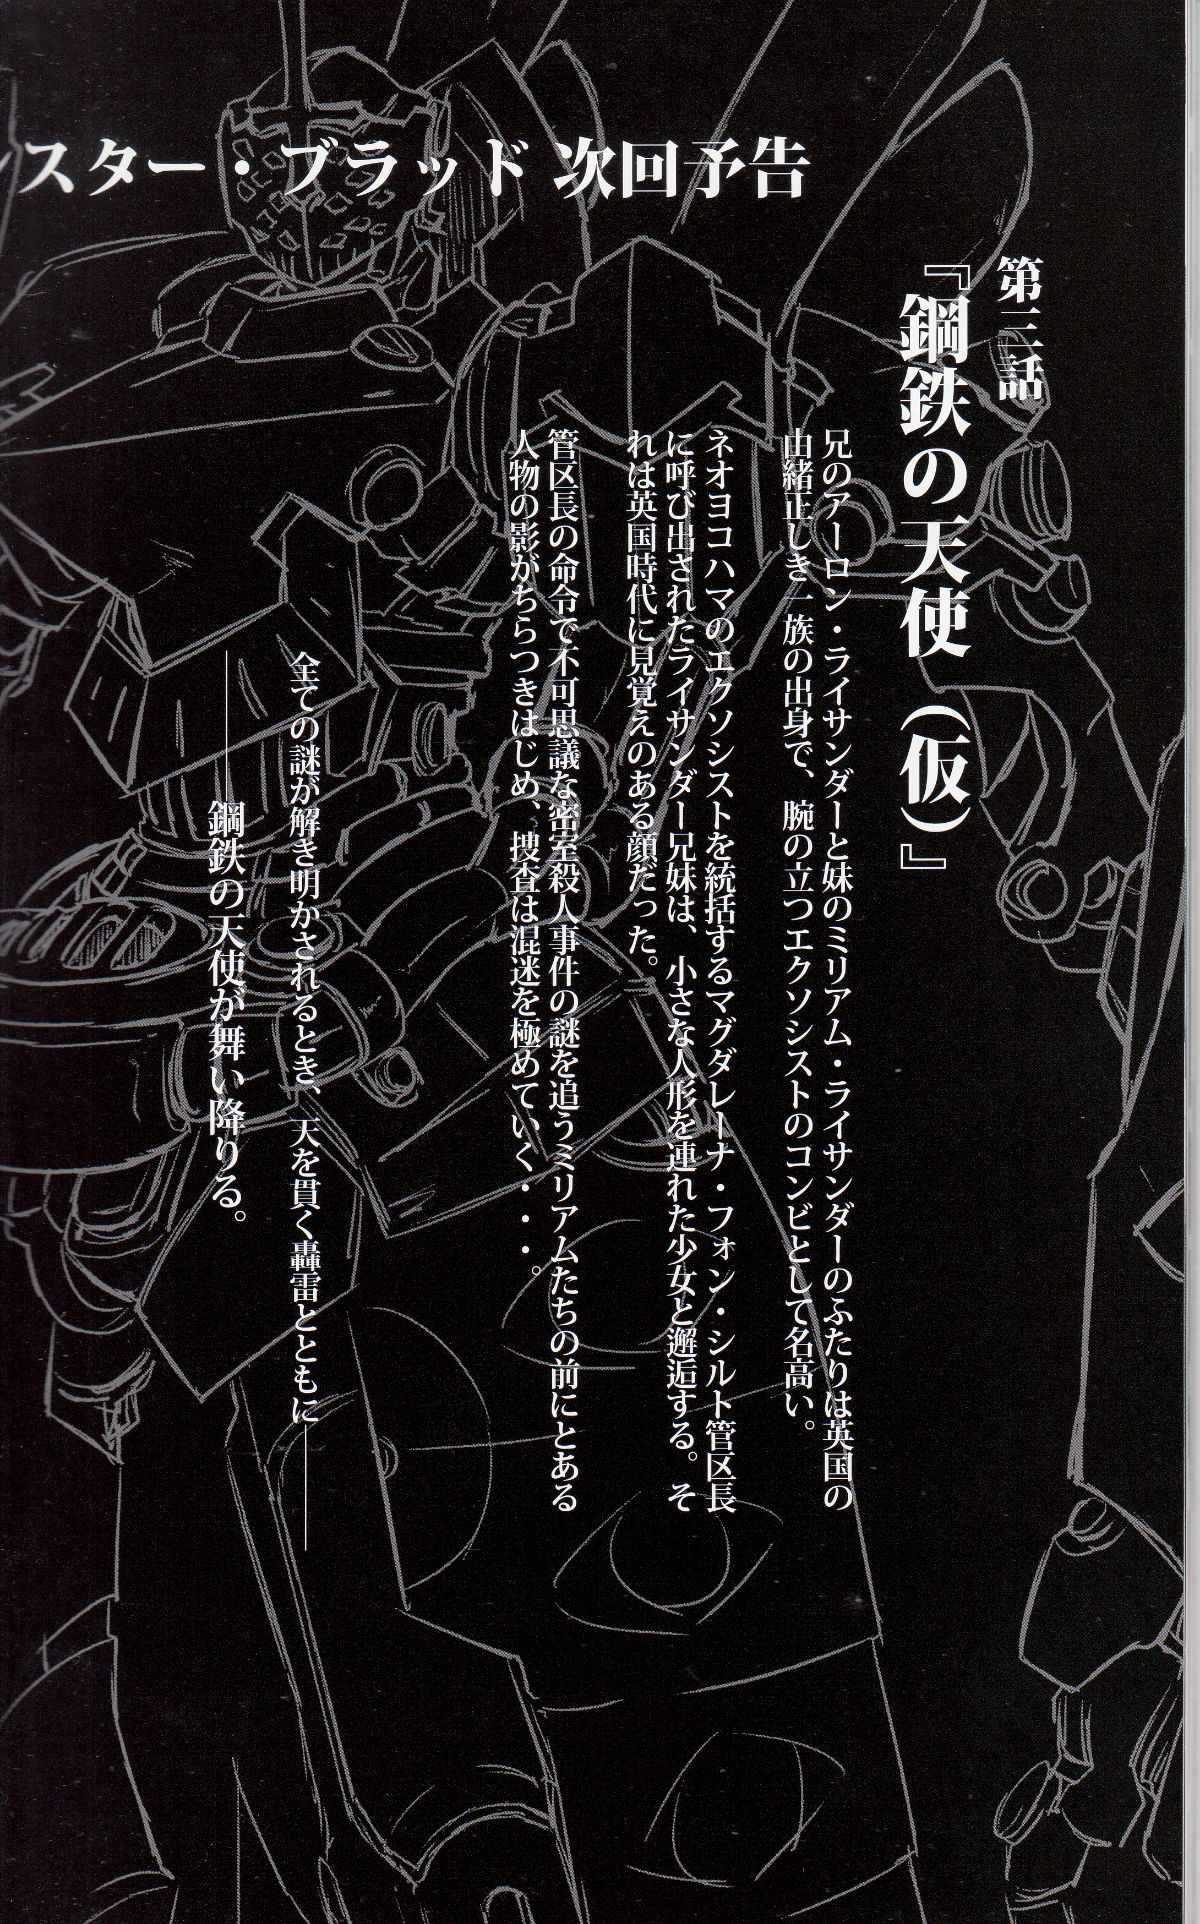 スター・ブラッド 次回予告
第三話
『鋼鉄の天使(仮)』
兄のアーロン・ライサンダーと妹のミリアム・ライサンダーのふたりは英国の
由緒正しき一族の出身で、腕の立つエクソシストのコンビとして名高い。
ネオヨコハマのエクソシストを統括するマグダレーナ・フォン・シルト管区長
に呼び出されたライサンダー兄妹は、小さな人形を連れた少女と邂逅する。そ
れは英国時代に見覚えのある顔だった。
管区長の命令で不可思議な密室殺人事件の謎を追うミリアムたちの前にとある
人物の影がちらつきはじめ、捜査は混迷を極めていく・・・。
全ての謎が解き明かされるとき、天を貫く轟雷とともに――――
――――鋼鉄の天使が舞い降りる。